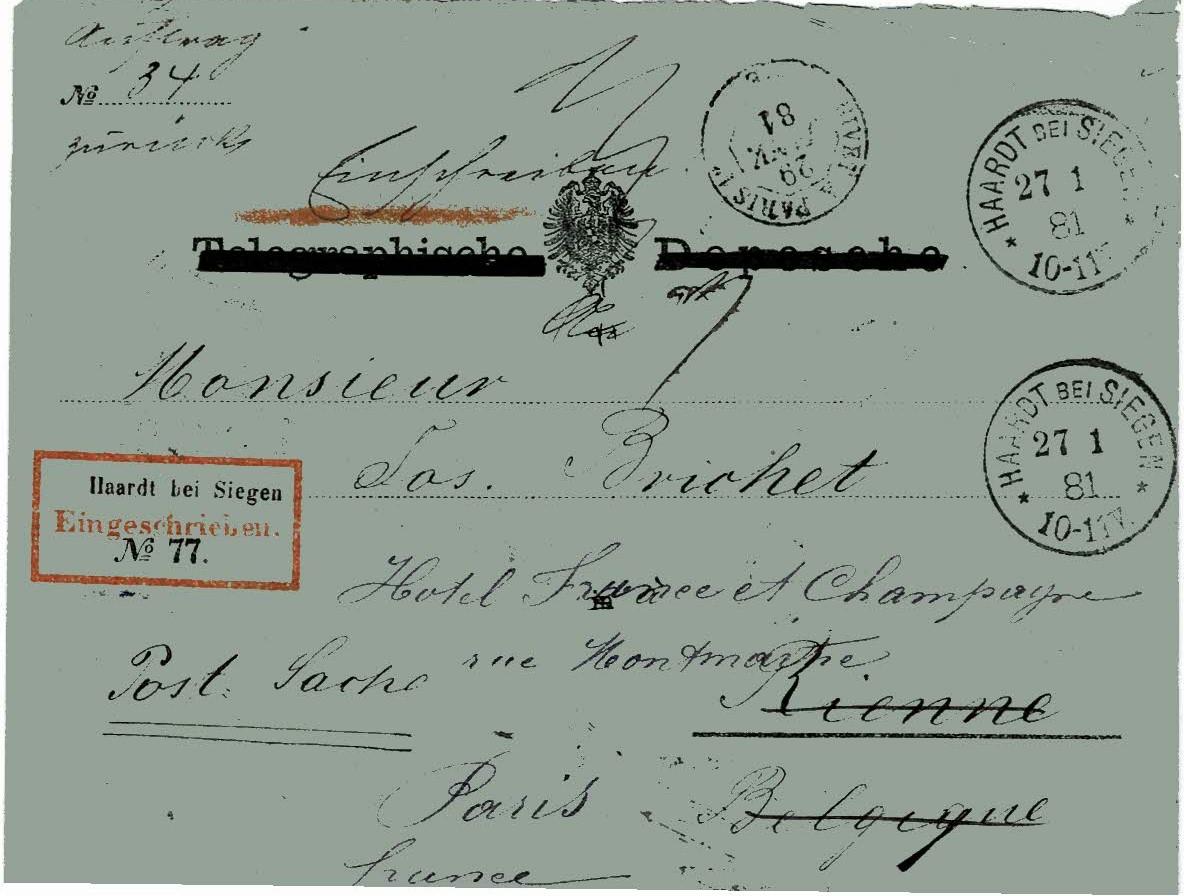 Auftrag
№ 34
zurück
Einschreiben
Telegraphische Depesche
PARIS 29 JANV 81
HAARDT BEI SIEGEN
27 1
81
10-11V.
An
Monsieur
Jos. Brichet
HAARDT BEI SIEGEN
27 1
81
10-11V.
Haardt bei Siegen
Eingeschrieben.
№ 77.
Hotel France et Champagne
rue Montmartre
Post. Sache
Rienne
Paris
Belgique
france